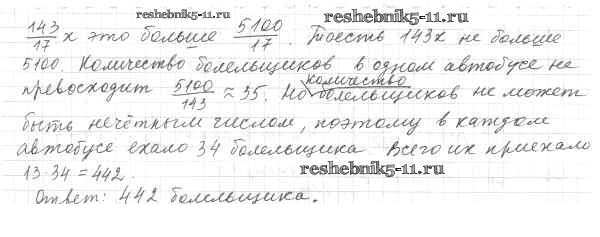 reshebnik5-11.ru
reshebnik5-11.ru
143/17 x это больше 5100/17. Тоесть 143x не больше
5100. Количество болельщиков в одном автобусе не
превосходит 5100/143 ≈ 35. Но количество болельщиков не может
быть нечётным числом, поэтому в каждом
автобусе ехало 34 болельщика Всего их приехало
13·34 = 442.
reshebnik5-11.ru
Ответ: 442 болельщика.